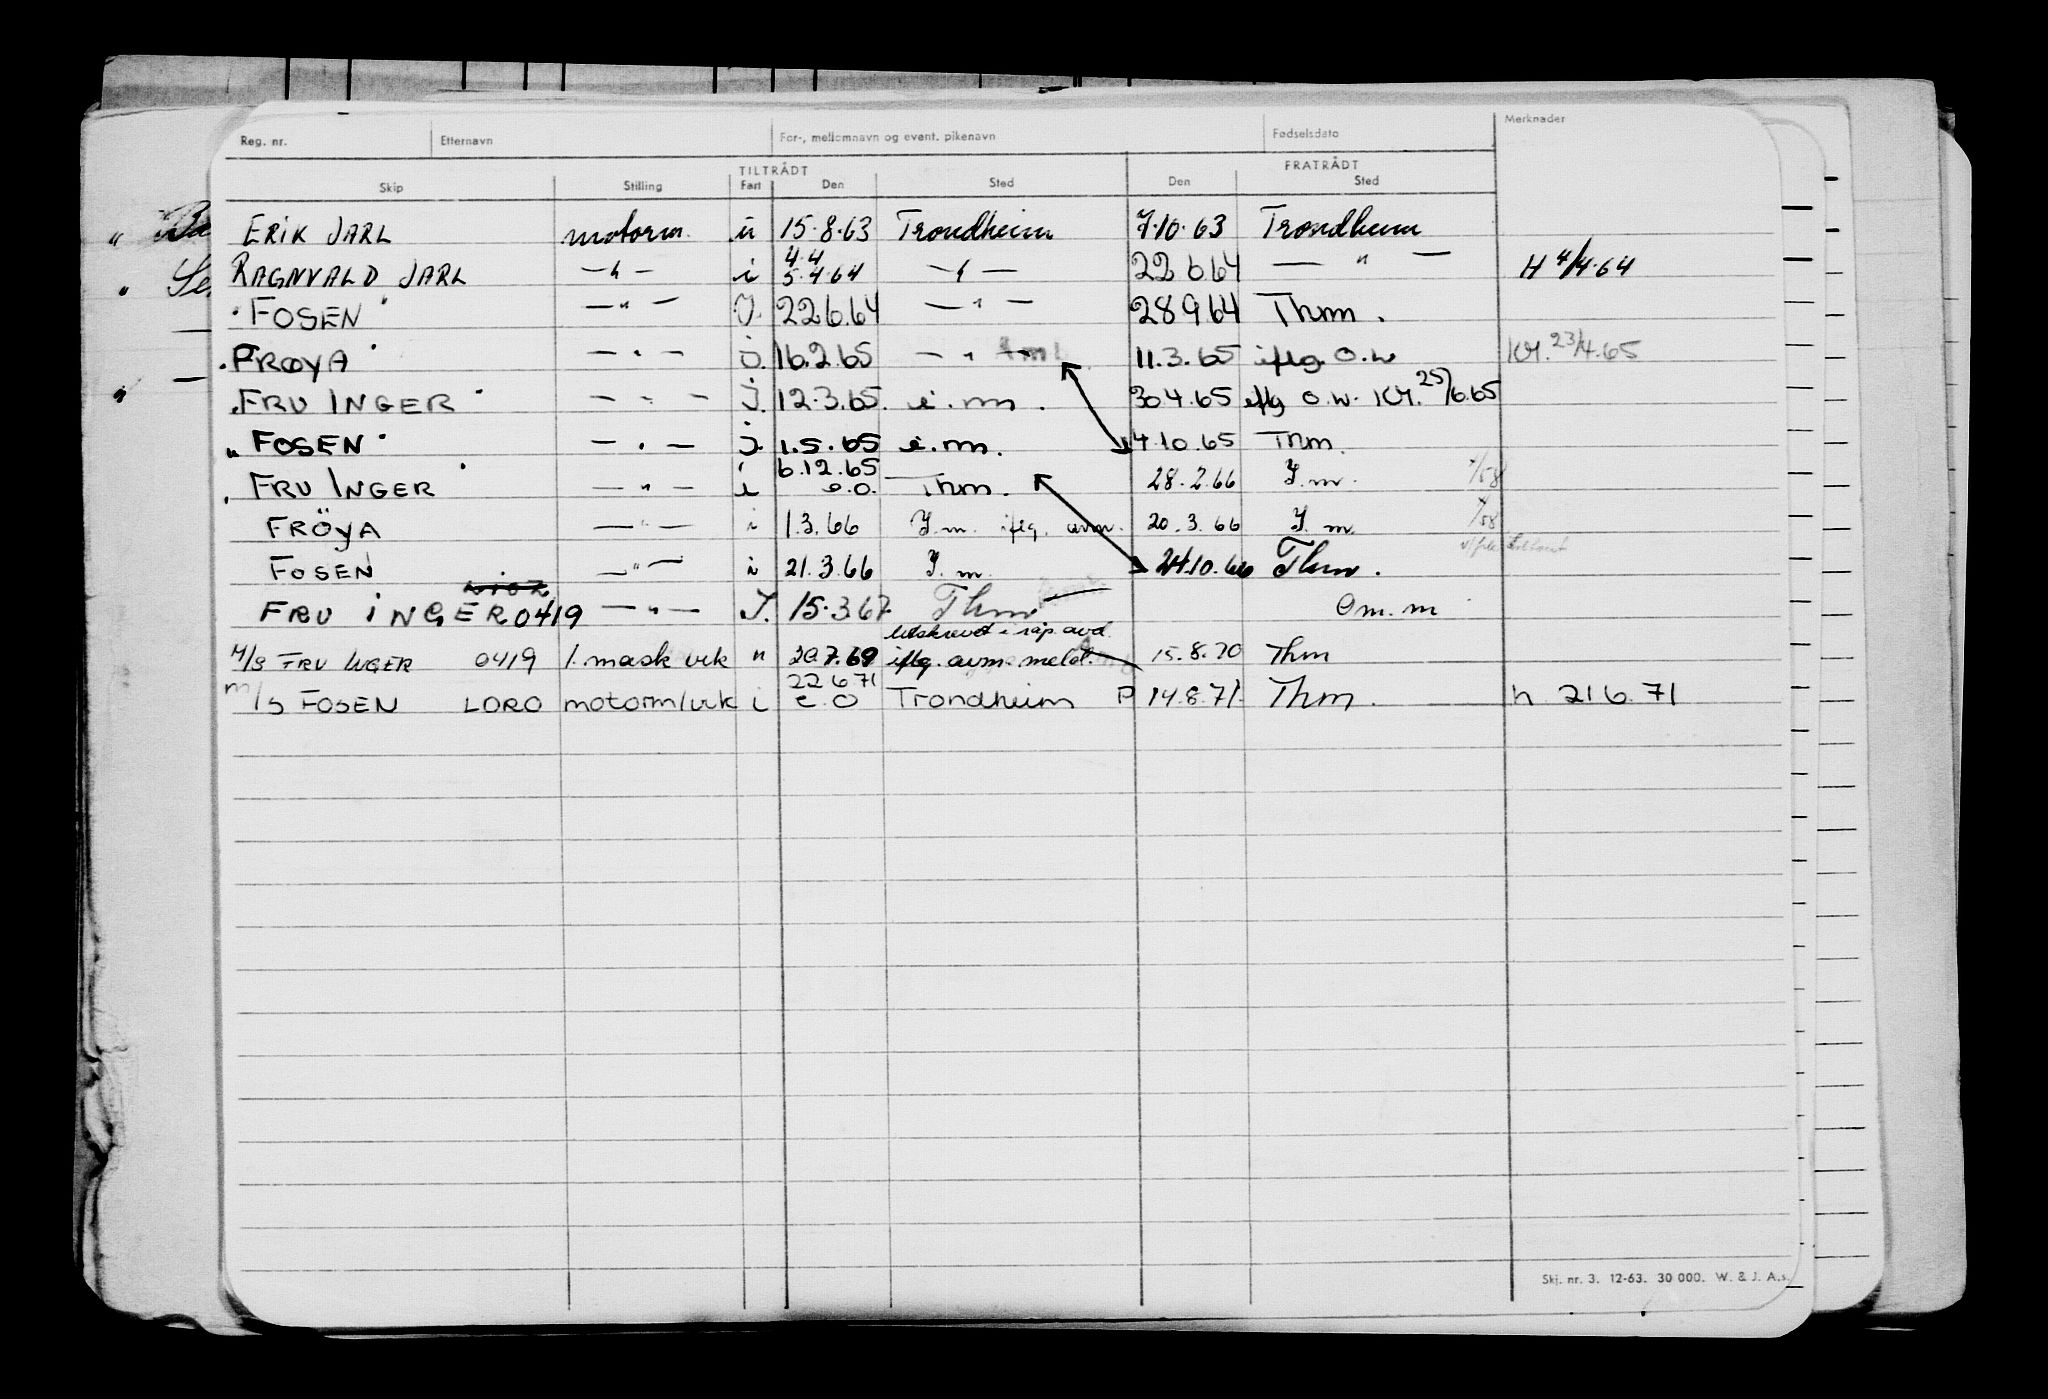 Reg. nr. Etternavn For-, mellomnavn og event. pikenavn Fødselsdato Merknader
TILTRÅDT FRATRÅDT
Skip Stilling Fart Den Sted Den Sted
ERIK JARL motorm. u 15.8.63 Trondheim 7.10.63 Trondheim
4.4
RAGNVALD JARL — " — i 5.4.64 — " — 22.6.64 — " — H 4/4.64
" FOSEN " — " — J. 22.6.64 — " — 28.9.64 Thm.
" FRØYA " — " — J. 16.2.65 — " — 11.3.65 iflg. O.W Kl. 23/4.65
" FRU INGER " — " — J. 12.3.65. i.m. 30.4.65 iflg O.W. Kl. 25/6.65
" FOSEN " — " — J. 1.5.65 i.m. 4.10.65 Thm.
6.12.65
" FRU INGER " — " — i e.o. Thm. 28.2.66 J.m.
FRÖYA — " — i 1.3.66 J.m. iflg. avm. 20.3.66 J.m.
FOSEN — " — i 21.3.66 J.m. 24.10.66 Thm.
FRU INGER 0419 — " — J. 15.3.67 Thm Om.m
utskrevet i rap. avd.
M/S FRU INGER 0419 1. mask vik n 20.7.69 iflg. avm. meld. 15.8.70 Thm
22.6.71
M/S FOSEN LORO motorm/vik i e.o Trondheim P 14.8.71. Thm. h. 21.6.71
Skj. nr. 3. 12-63. 30 000. W. & J. A.s.